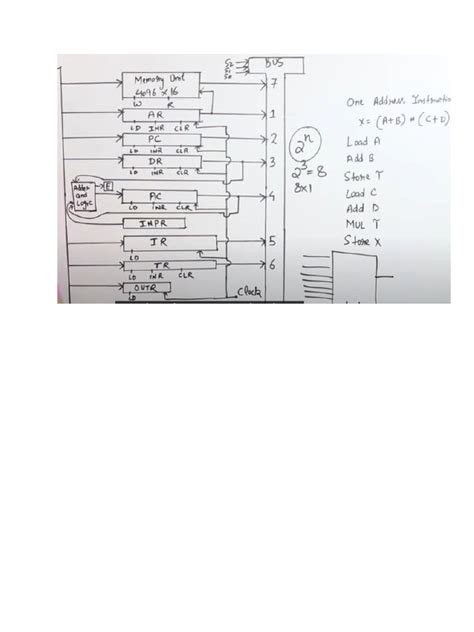 S2
S1
S0
BUS
Memory Unit
4096 x 16
7
W R
AR
1
LD INR CLR
PC
2
LD INR CLR
DR
3
LD INR CLR
Adder
and
Logic
E
4
LD INR CLR
INPR
IR
5
LD
TR
6
LD INR CLR
OUTR
LD
Clock
2^n
2^3 = 8
8x1
One Address Instructio
X = (A+B) * (C+D)
Load A
Add B
Store T
Load C
Add D
MUL T
Store X